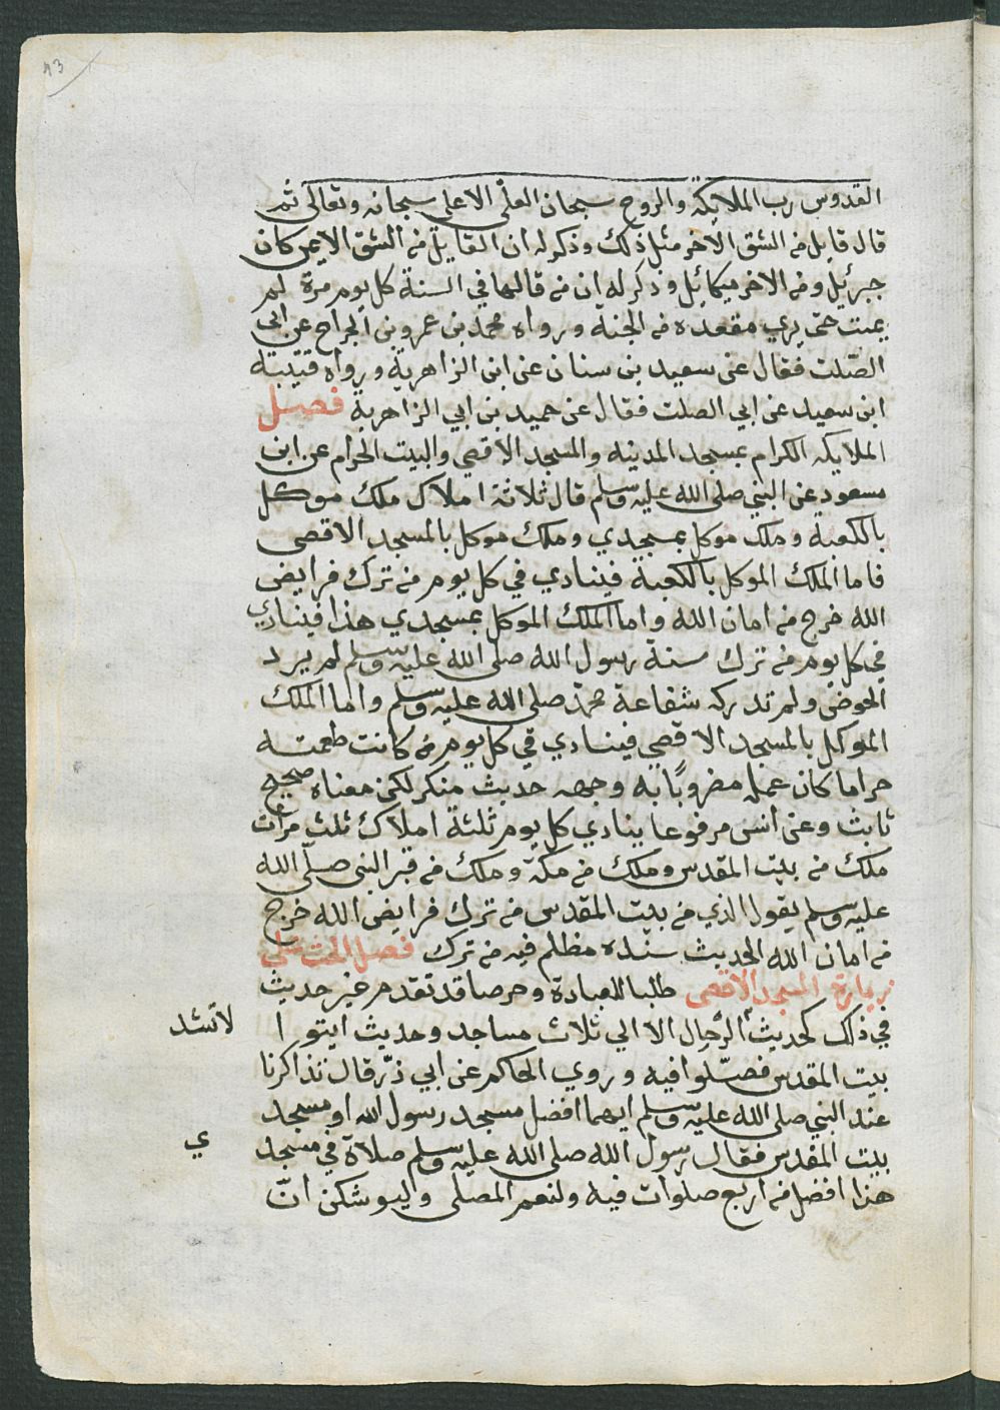 43
القدوس رب الملايكة والروح سبحان العلي الاعلى سبحانه وتعالى ثم
قال قايل من الشق الاخر مثل ذلك وذكر له ان القايل من الشق الايمن كان
جبرئيل ومن الاخر ميكائيل وذكر له ان من قالها في السنة كل يوم مرة لم
يمت حتى يري مقعده من الجنة ورواه محمد بن عمرو بن الجراح عن ابي
الصلت فقال عن سعيد بن سنان عن ابن الزاهرية ورواه قتيبة
ابن سعيد عن ابي الصلت فقال عن حميد بن ابي الزاهرية فصل
الملايكه الكرام بمسجد المدينه والمسجد الاقصي والبيت الحرام عن ابن
مسعود عن النبي صلى الله عليه وسلم قال ثلاثة املاك ملك موكل
بالكعبه وملك موكل بمسجدي وملك موكل بالمسجد الاقصى
فاما الملك الموكل بالكعبة فينادي في كل يوم من ترك فرايض
الله خرج من امان الله واما الملك الموكل بمسجدي هذا فينادي
في كل يوم من ترك سنة رسول الله صلى الله عليه وسلم لم يرد
الحوض ولم تدركه شفاعة محمد صلى الله عليه وسلم واما الملك
الموكل بالمسجد الاقصي فينادي في كل يوم من كانت طعمته
حراما كان عمله مضروبًا به وجهه حديث منكر لكن معناه صحيح
ثابث وعن انس مرفوعا ينادي كل يوم ثلثة املاك ثلث مرات
ملك من بيت المقدس وملك من مكة وملك من قبر النبي صلى الله
عليه وسلم يقول الذي من بيت المقدس من ترك فرايض الله خرج
من امان الله الحديث سنده مظلم فيه من ترك فصل الحث على
زيارة المسجد الاقصى طلبا للعبادة وحرصا قد تقدم غير حديث
في ذلك كحديث الرحال الا الي ثلاث مساجد وحديث ايتوا
لا تشد
بيت المقدس فصلوا فيه وروي الحاكم عن ابي ذر قال تذاكرنا
عند النبي صلى الله عليه وسلم ايهما افضل مسجد رسول الله او مسجد
بيت المقدس فقال رسول الله صلى الله عليه وسلم صلاة في مسجد
ي
هذا افضل من اربع صلوات فيه ولنعم المصلى وليوشكن انّ